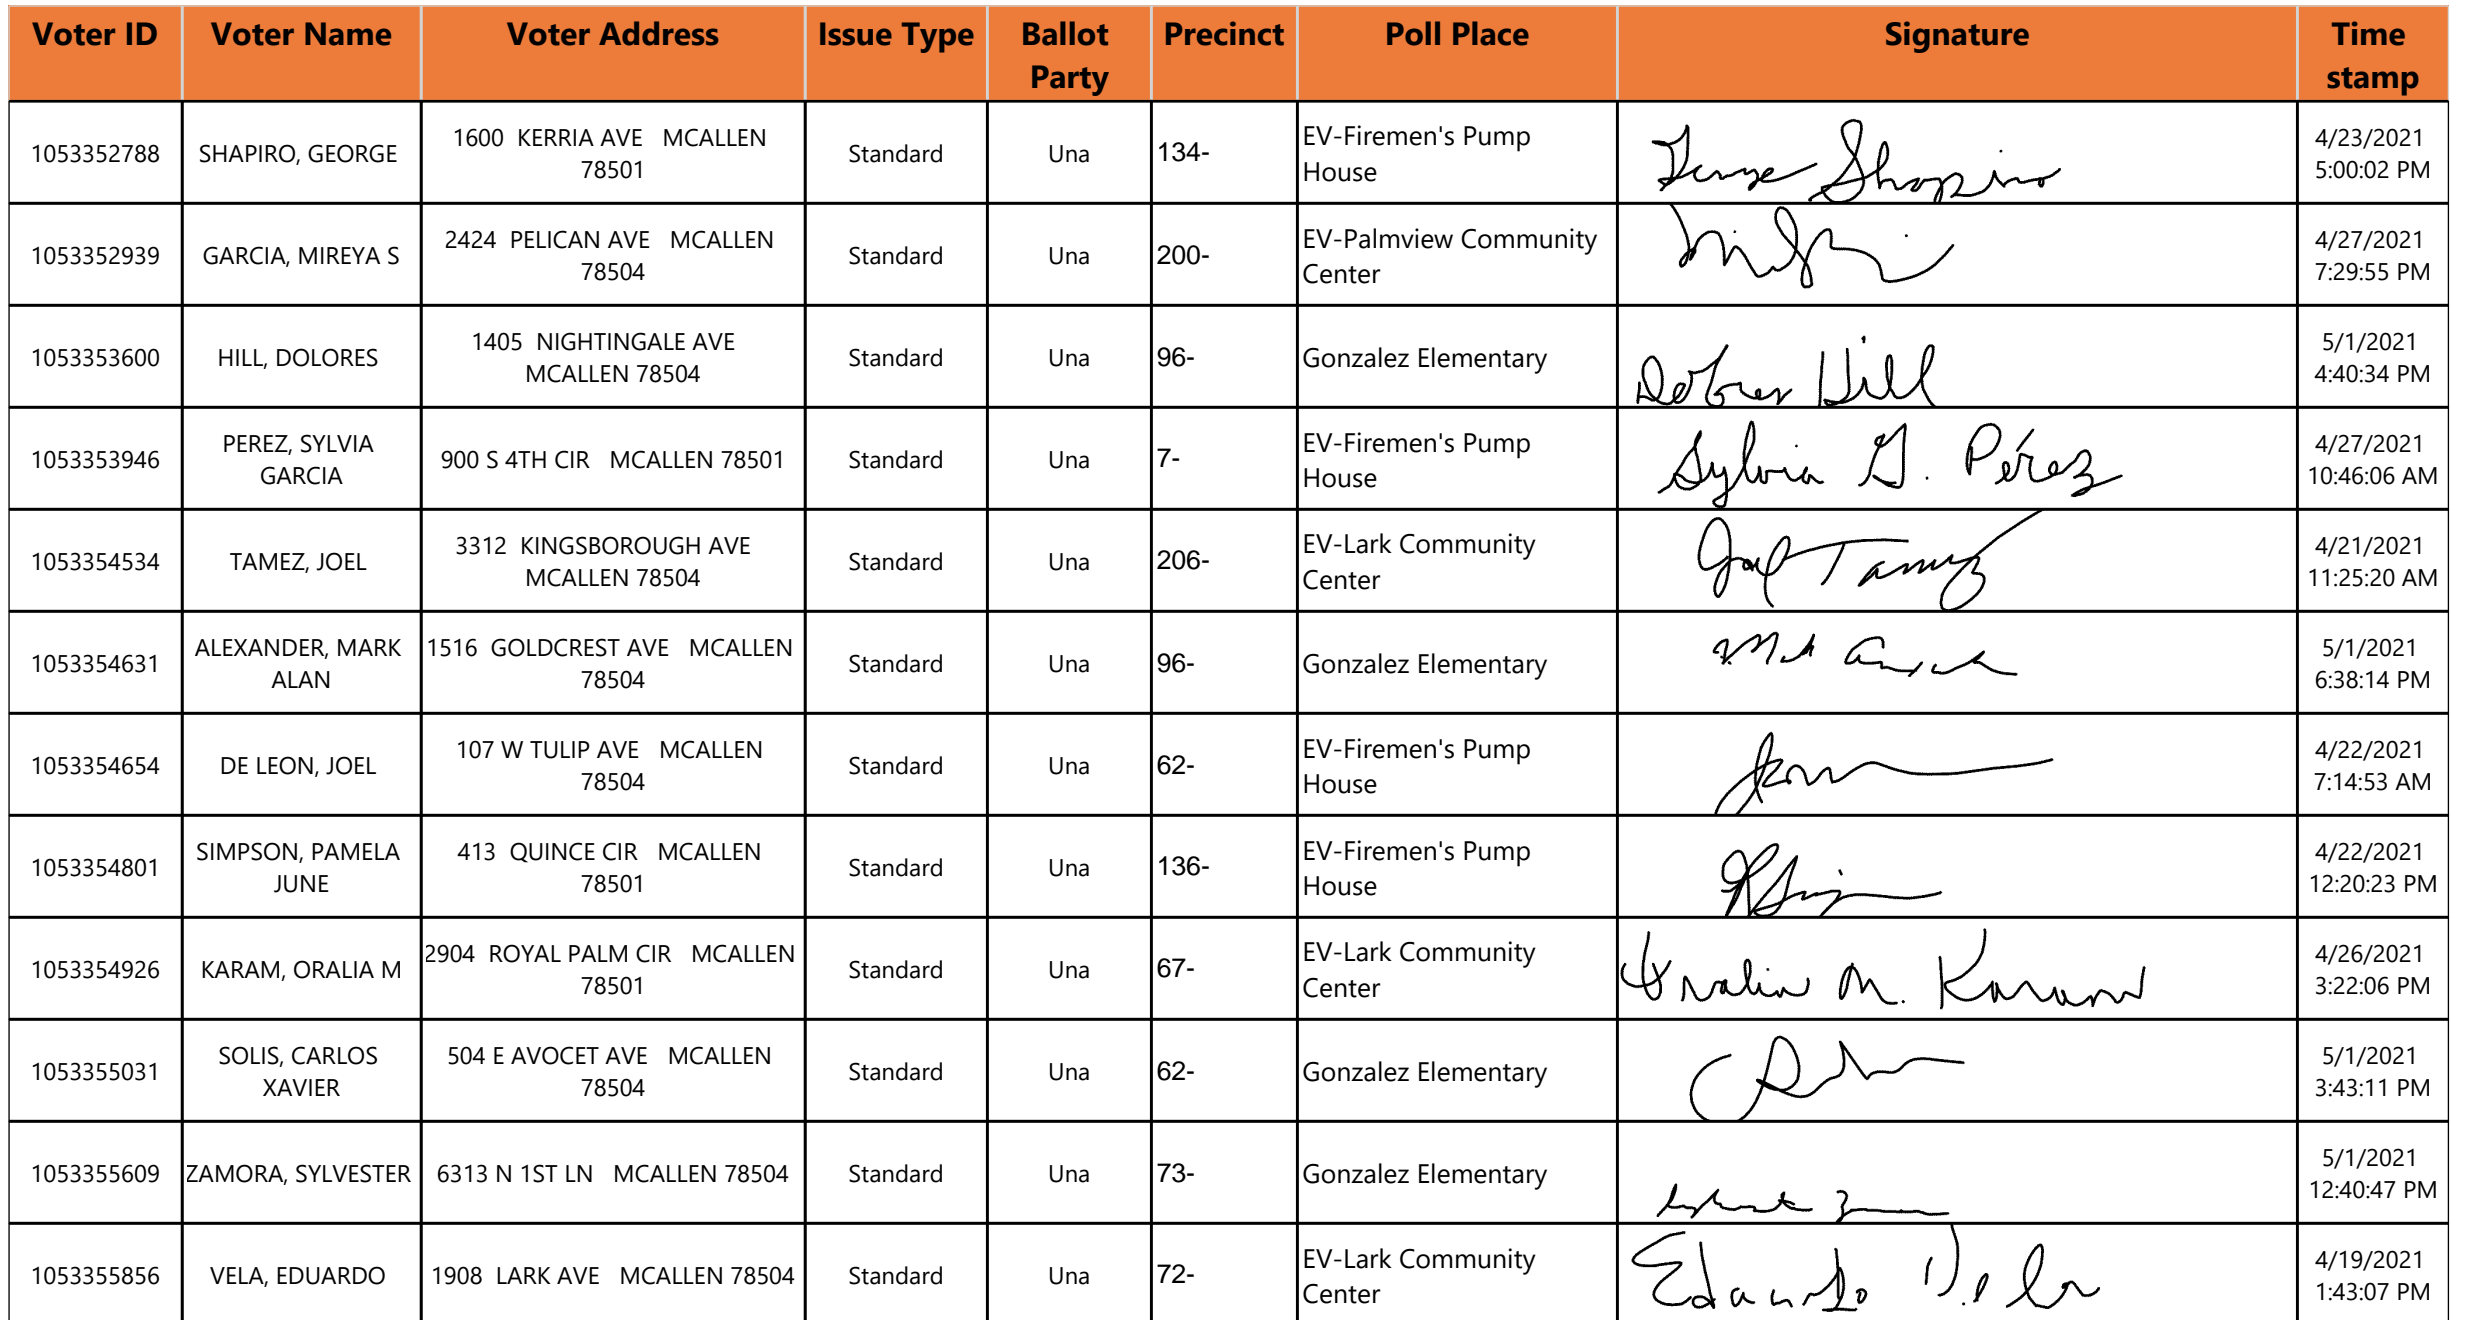 Voter ID Voter Name Voter Address Issue Type Ballot Party Precinct Poll Place Signature Time stamp
1053352788 SHAPIRO, GEORGE 1600 KERRIA AVE MCALLEN 78501 Standard Una 134- EV-Firemen's Pump House George Shapiro 4/23/2021 5:00:02 PM
1053352939 GARCIA, MIREYA S 2424 PELICAN AVE MCALLEN 78504 Standard Una 200- EV-Palmview Community Center 4/27/2021 7:29:55 PM
1053353600 HILL, DOLORES 1405 NIGHTINGALE AVE MCALLEN 78504 Standard Una 96- Gonzalez Elementary Dolores Hill 5/1/2021 4:40:34 PM
1053353946 PEREZ, SYLVIA GARCIA 900 S 4TH CIR MCALLEN 78501 Standard Una 7- EV-Firemen's Pump House Sylvia G. Pérez 4/27/2021 10:46:06 AM
1053354534 TAMEZ, JOEL 3312 KINGSBOROUGH AVE MCALLEN 78504 Standard Una 206- EV-Lark Community Center Joel Tamez 4/21/2021 11:25:20 AM
1053354631 ALEXANDER, MARK ALAN 1516 GOLDCREST AVE MCALLEN 78504 Standard Una 96- Gonzalez Elementary 5/1/2021 6:38:14 PM
1053354654 DE LEON, JOEL 107 W TULIP AVE MCALLEN 78504 Standard Una 62- EV-Firemen's Pump House 4/22/2021 7:14:53 AM
1053354801 SIMPSON, PAMELA JUNE 413 QUINCE CIR MCALLEN 78501 Standard Una 136- EV-Firemen's Pump House 4/22/2021 12:20:23 PM
1053354926 KARAM, ORALIA M 2904 ROYAL PALM CIR MCALLEN 78501 Standard Una 67- EV-Lark Community Center Oralia M. Karam 4/26/2021 3:22:06 PM
1053355031 SOLIS, CARLOS XAVIER 504 E AVOCET AVE MCALLEN 78504 Standard Una 62- Gonzalez Elementary 5/1/2021 3:43:11 PM
1053355609 ZAMORA, SYLVESTER 6313 N 1ST LN MCALLEN 78504 Standard Una 73- Gonzalez Elementary 5/1/2021 12:40:47 PM
1053355856 VELA, EDUARDO 1908 LARK AVE MCALLEN 78504 Standard Una 72- EV-Lark Community Center Eduardo Vela 4/19/2021 1:43:07 PM